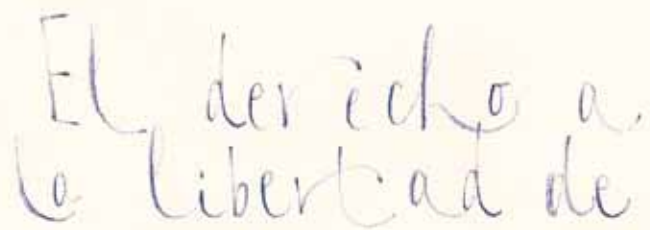 El derecho a
la libertad de